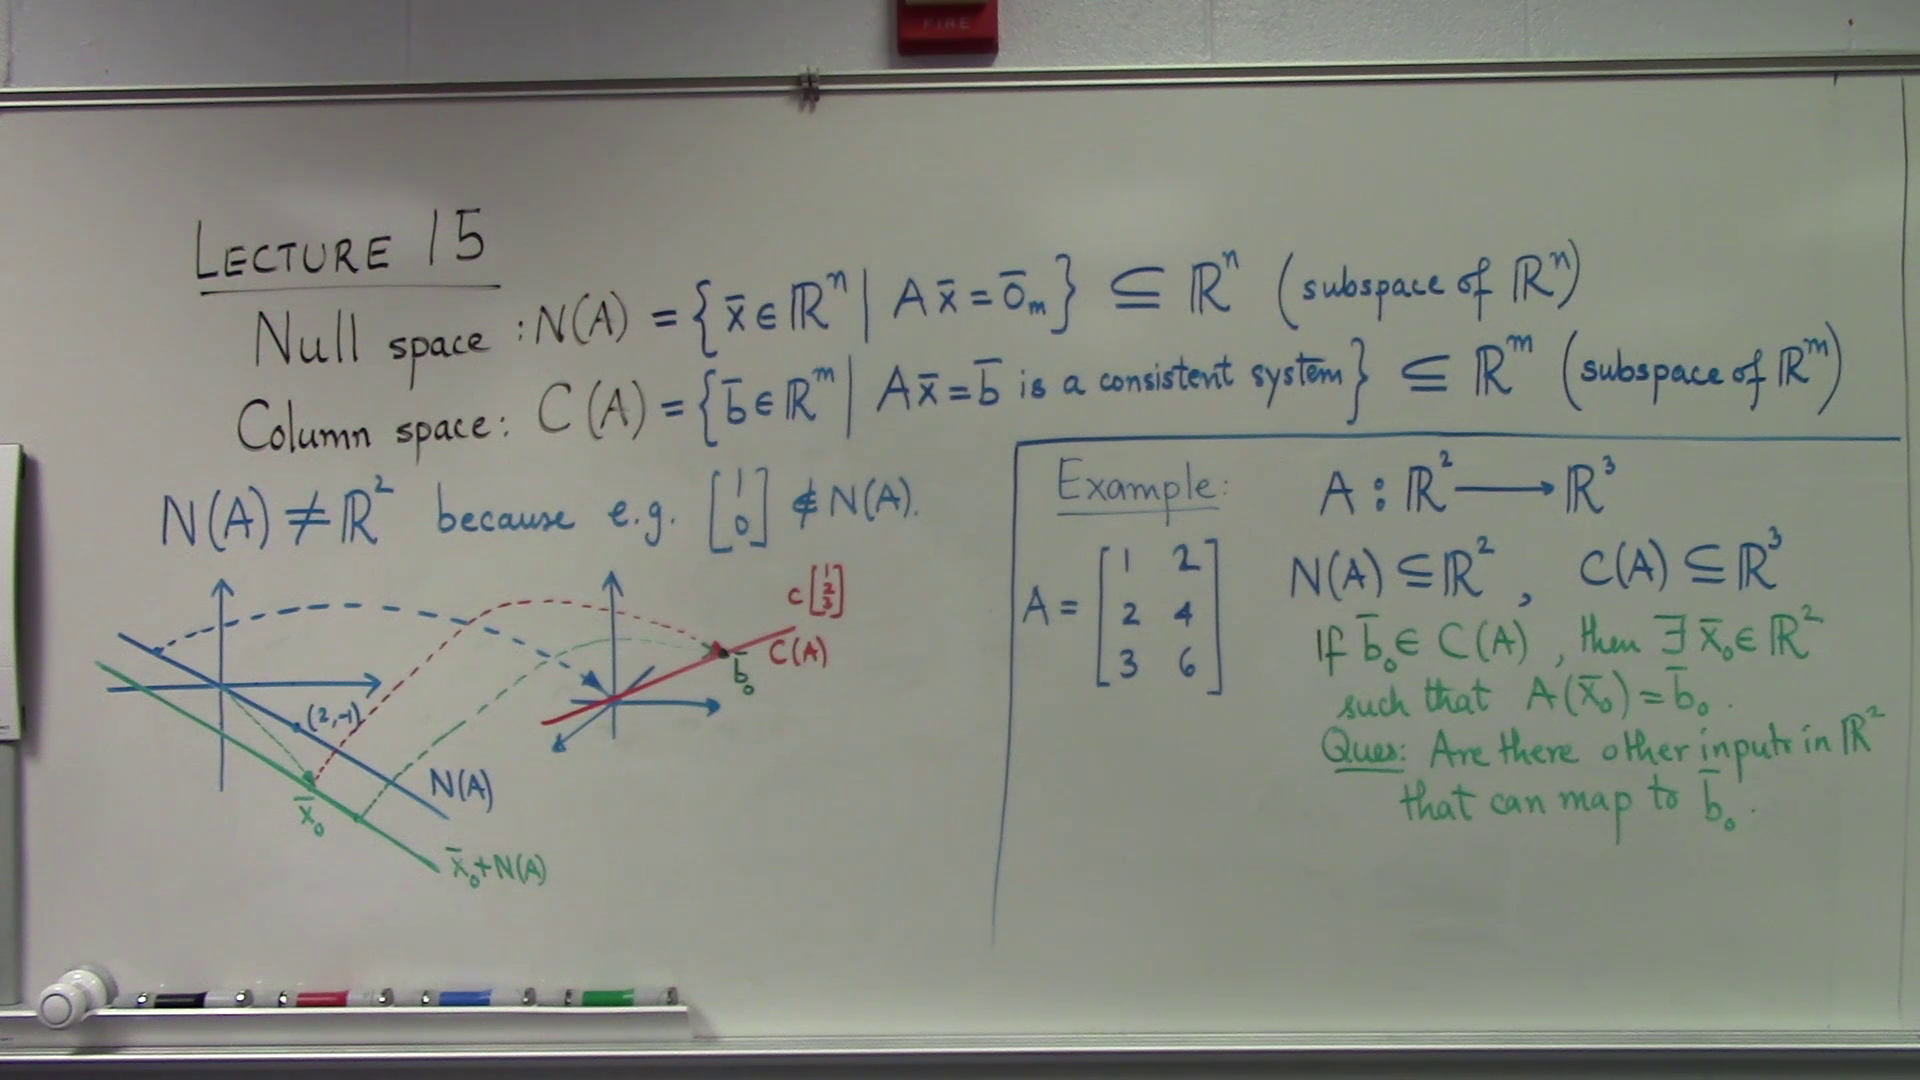 FIRE
LECTURE 15
Null space : N(A) = { x̄ ∈ ℝⁿ | A x̄ = ō_m } ⊆ ℝⁿ (subspace of ℝⁿ)
Column space: C(A) = { b̄ ∈ ℝᵐ | A x̄ = b̄ is a consistent system } ⊆ ℝᵐ (subspace of ℝᵐ)
N(A) ≠ ℝ² because e.g. [1 0] ∉ N(A).
(2,-1)
N(A)
x̄₀
x̄₀+N(A)
c[1 2 3]
C(A)
b̄₀
Example: A : ℝ² ⟶ ℝ³
A = [1 2
2 4
3 6]
N(A) ⊆ ℝ² , C(A) ⊆ ℝ³
If b̄₀ ∈ C(A) , then ∃ x̄₀ ∈ ℝ²
such that A(x̄₀) = b̄₀ .
Ques: Are there other inputs in ℝ²
that can map to b̄₀ .